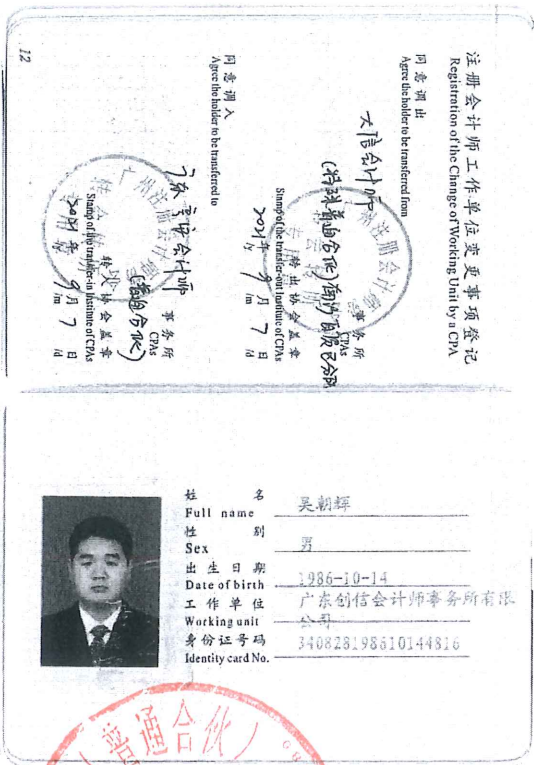 注册会计师工作单位变更事项登记
Registration of the Change of Working Unit by a CPA
同意调出
Agree the holder to be transferred from
大信会计师
(特殊普通合伙)
事务所
CPAs
转出协会盖章
Stamp of the transfer-out Institute of CPAs
2021年 9月 7日
/y /m /d
同意调入
Agree the holder to be transferred to
会计师
(普通合伙)
事务所
CPAs
转入协会盖章
Stamp of the transfer-in Institute of CPAs
2021年 9月 7日
/y /m /d
12
姓 名
Full name
吴朝辉
性 别
Sex
男
出生日期
Date of birth
1986-10-14
工作单位
Working unit
广东创信会计师事务所有限
公司
身份证号码
Identity card No.
340828198610144816
(普通合伙)